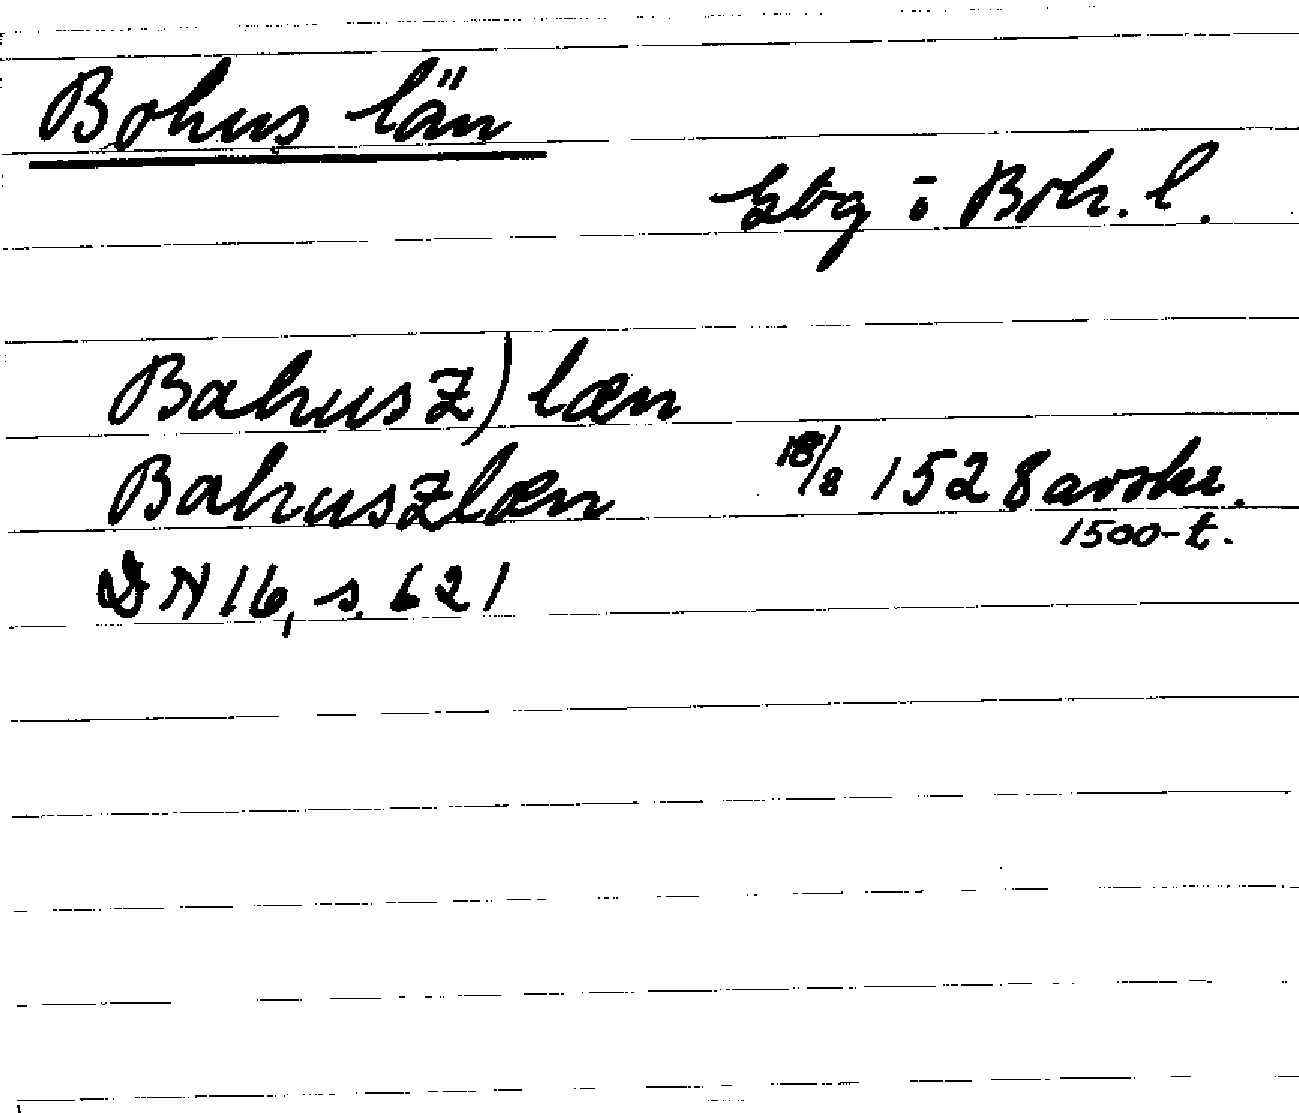 Bohus län
Gbg i Boh. l.
Bahusz) læn
Bahuszlæn 18/8 1528 avskr.
1500-t.
DN 16, s. 621